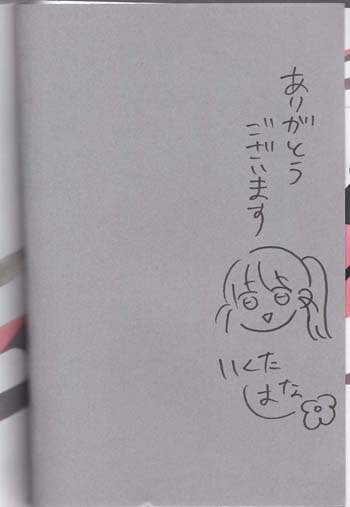 ありがとう
ございます
いくた
はな